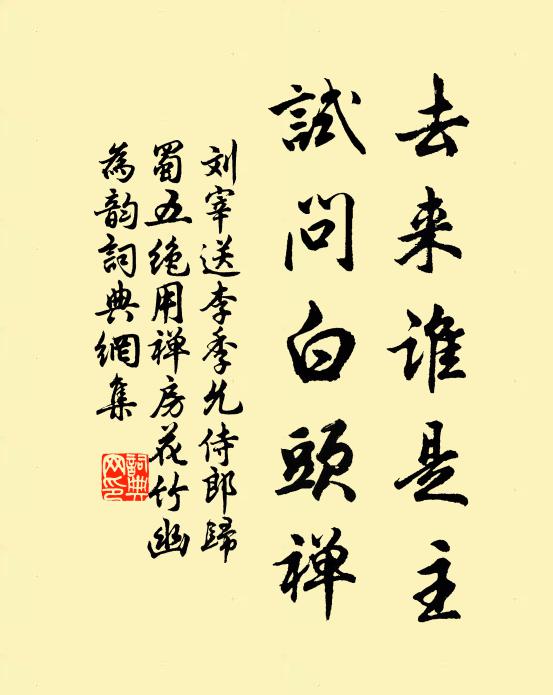 去来谁是主
試問白頭禅
刘宰送李季允侍郎歸
蜀五绝用禅房花竹幽
為韵詞典網集
詞典网印